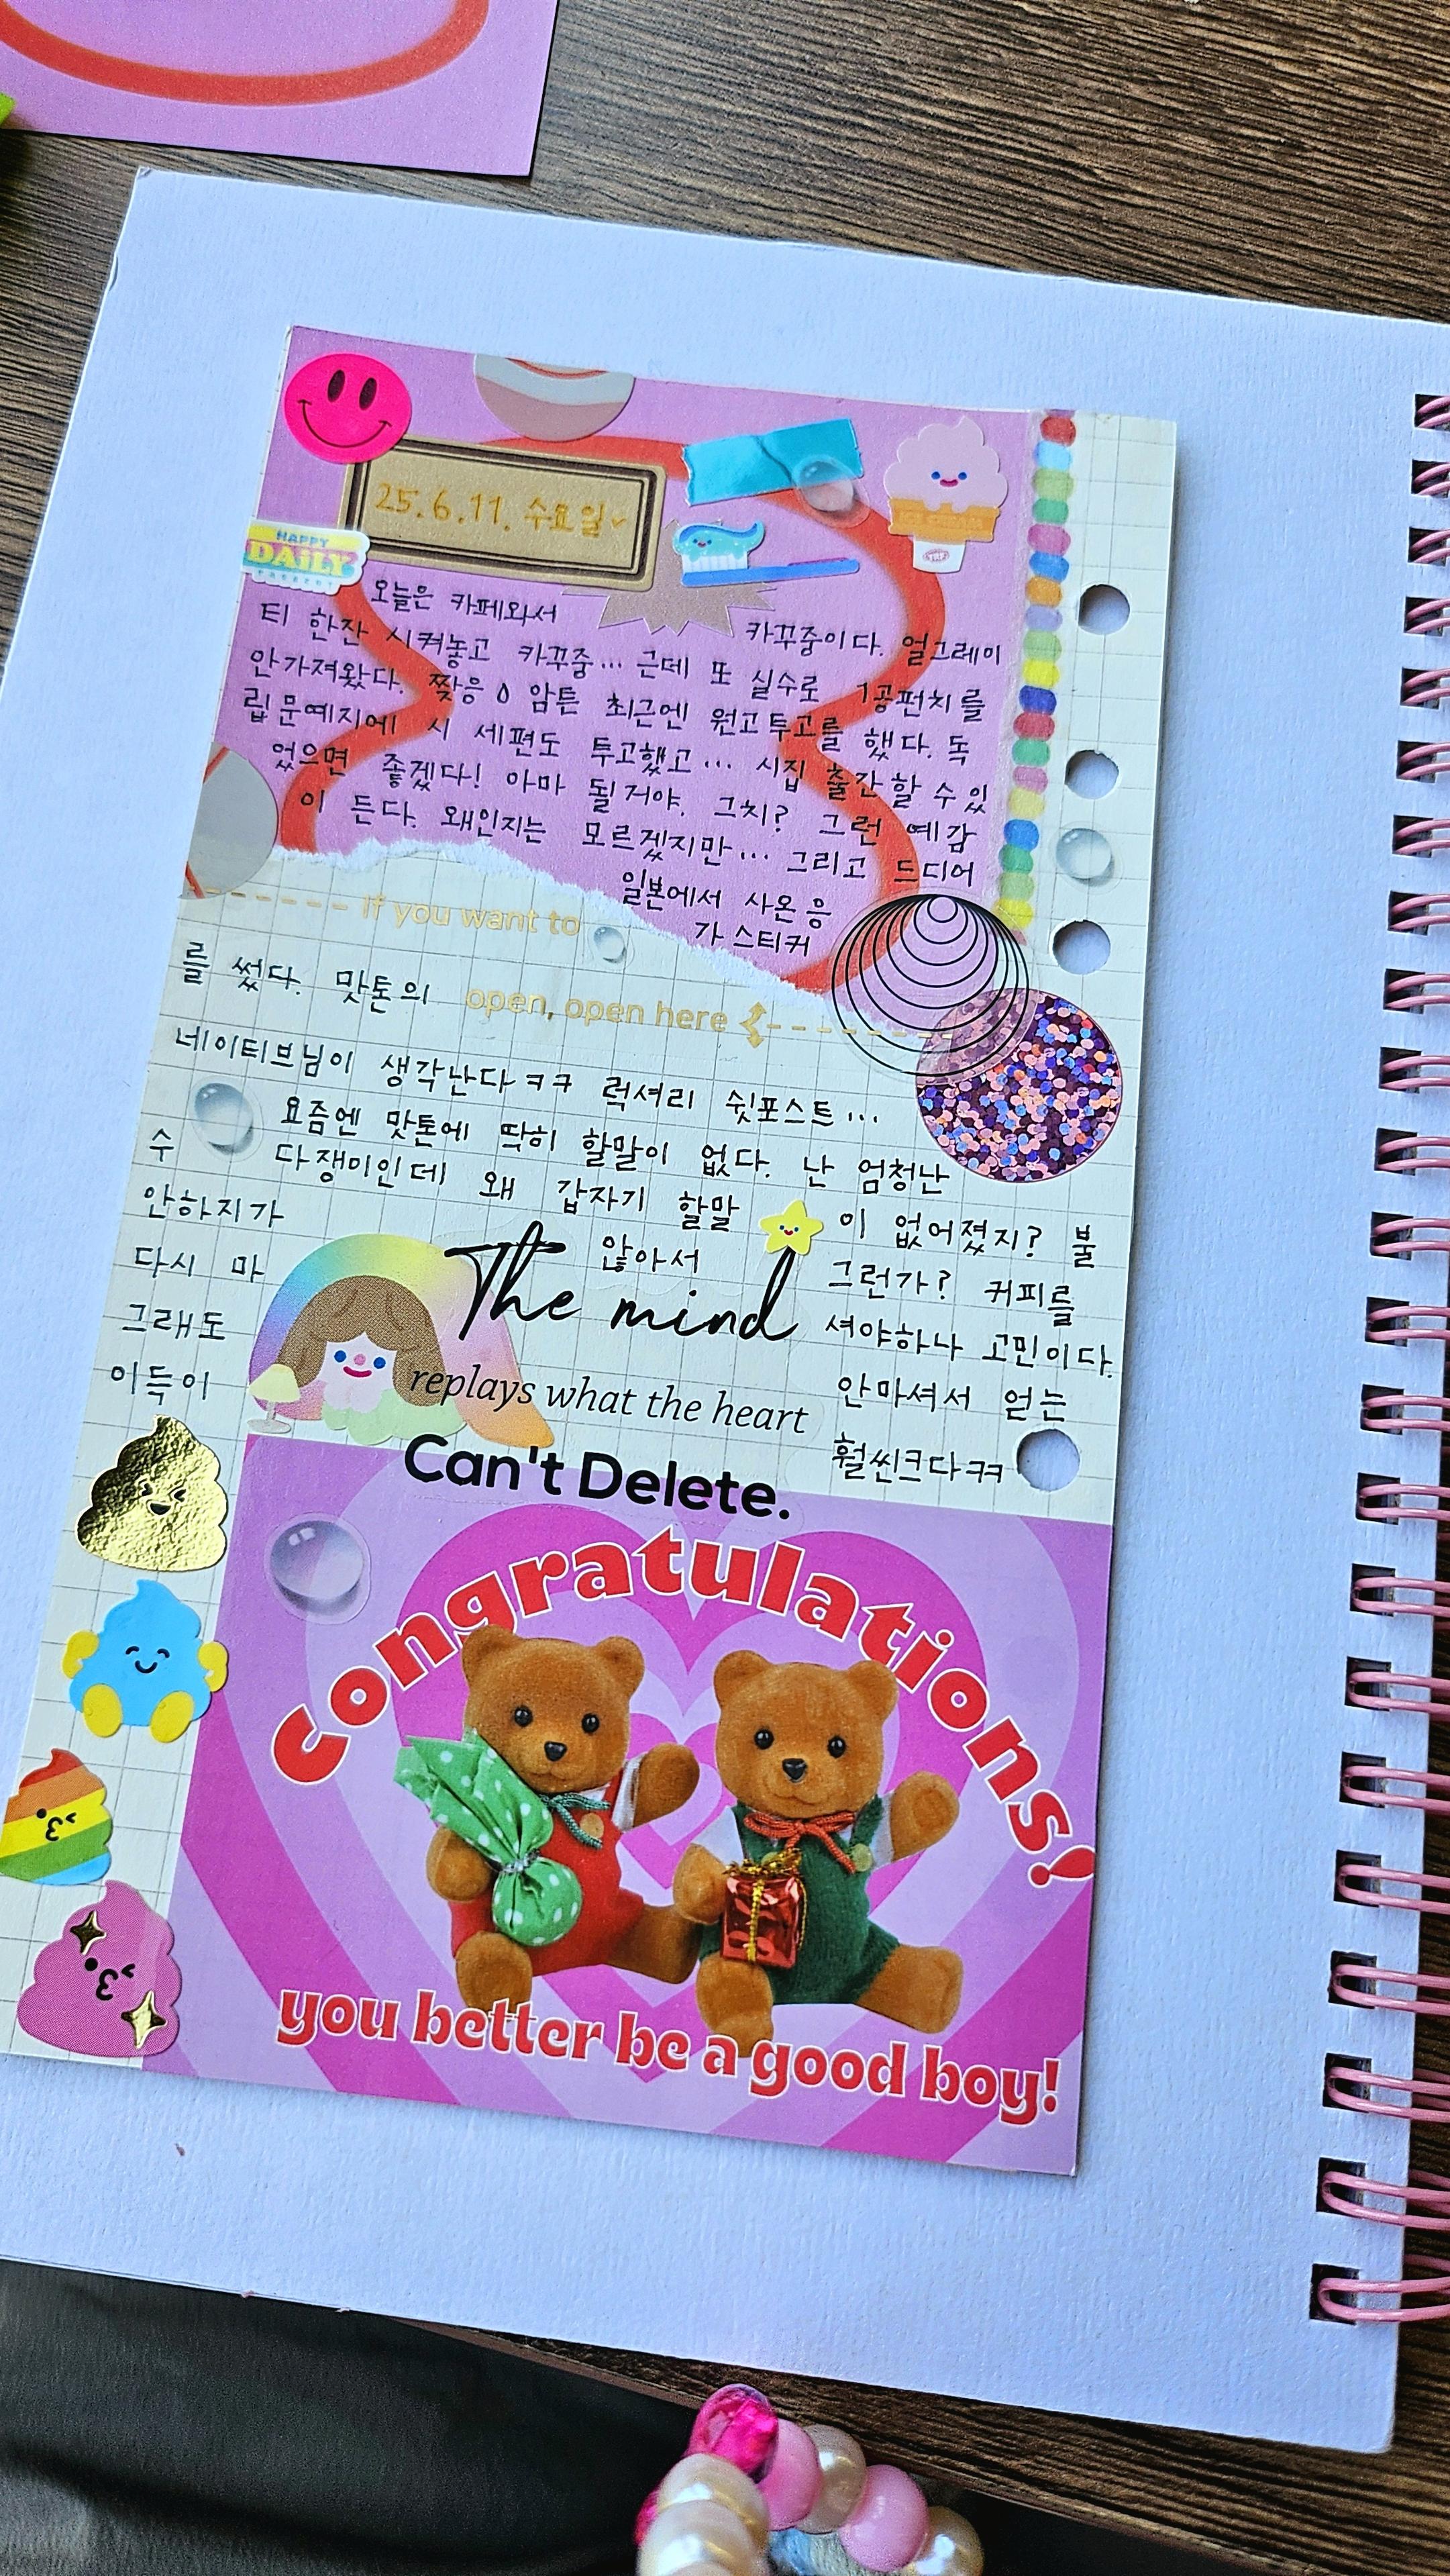 25.6.11. 수요일
HAPPY
DAiLY
오늘은 카페와서 카꾸중이다. 얼그레이
티 한잔 시켜놓고 카꾸중... 근데 또 실수로 1공펀치를
안가져왔다. 짲응 암튼 최근엔 원고투고를 했다. 독
립문예지에 시 세편도 투고했고... 시집 출간할 수 있
었으면 좋겠다! 아마 될거야. 그치? 그런 예감
이 든다. 왜인지는 모르겠지만... 그리고 드디어
일본에서 사온 응
가 스티커
if you want to
를 썼다. 맛톤의
open, open here
네이티브님이 생각난다ㅋㅋ 럭셔리 쉿포스트...
요즘엔 맛톤에 딱히 할말이 없다. 난 엄청난
수다쟁이인데 왜 갑자기 할말이 없어졌지? 불
안하지가 않아서 그런가? 커피를
다시 마셔야하나 고민이다.
그래도 안마셔서 얻는
이득이 훨씬크다ㅋㅋ
The mind
replays what the heart
Can't Delete.
Congratulations!
you better be a good boy!